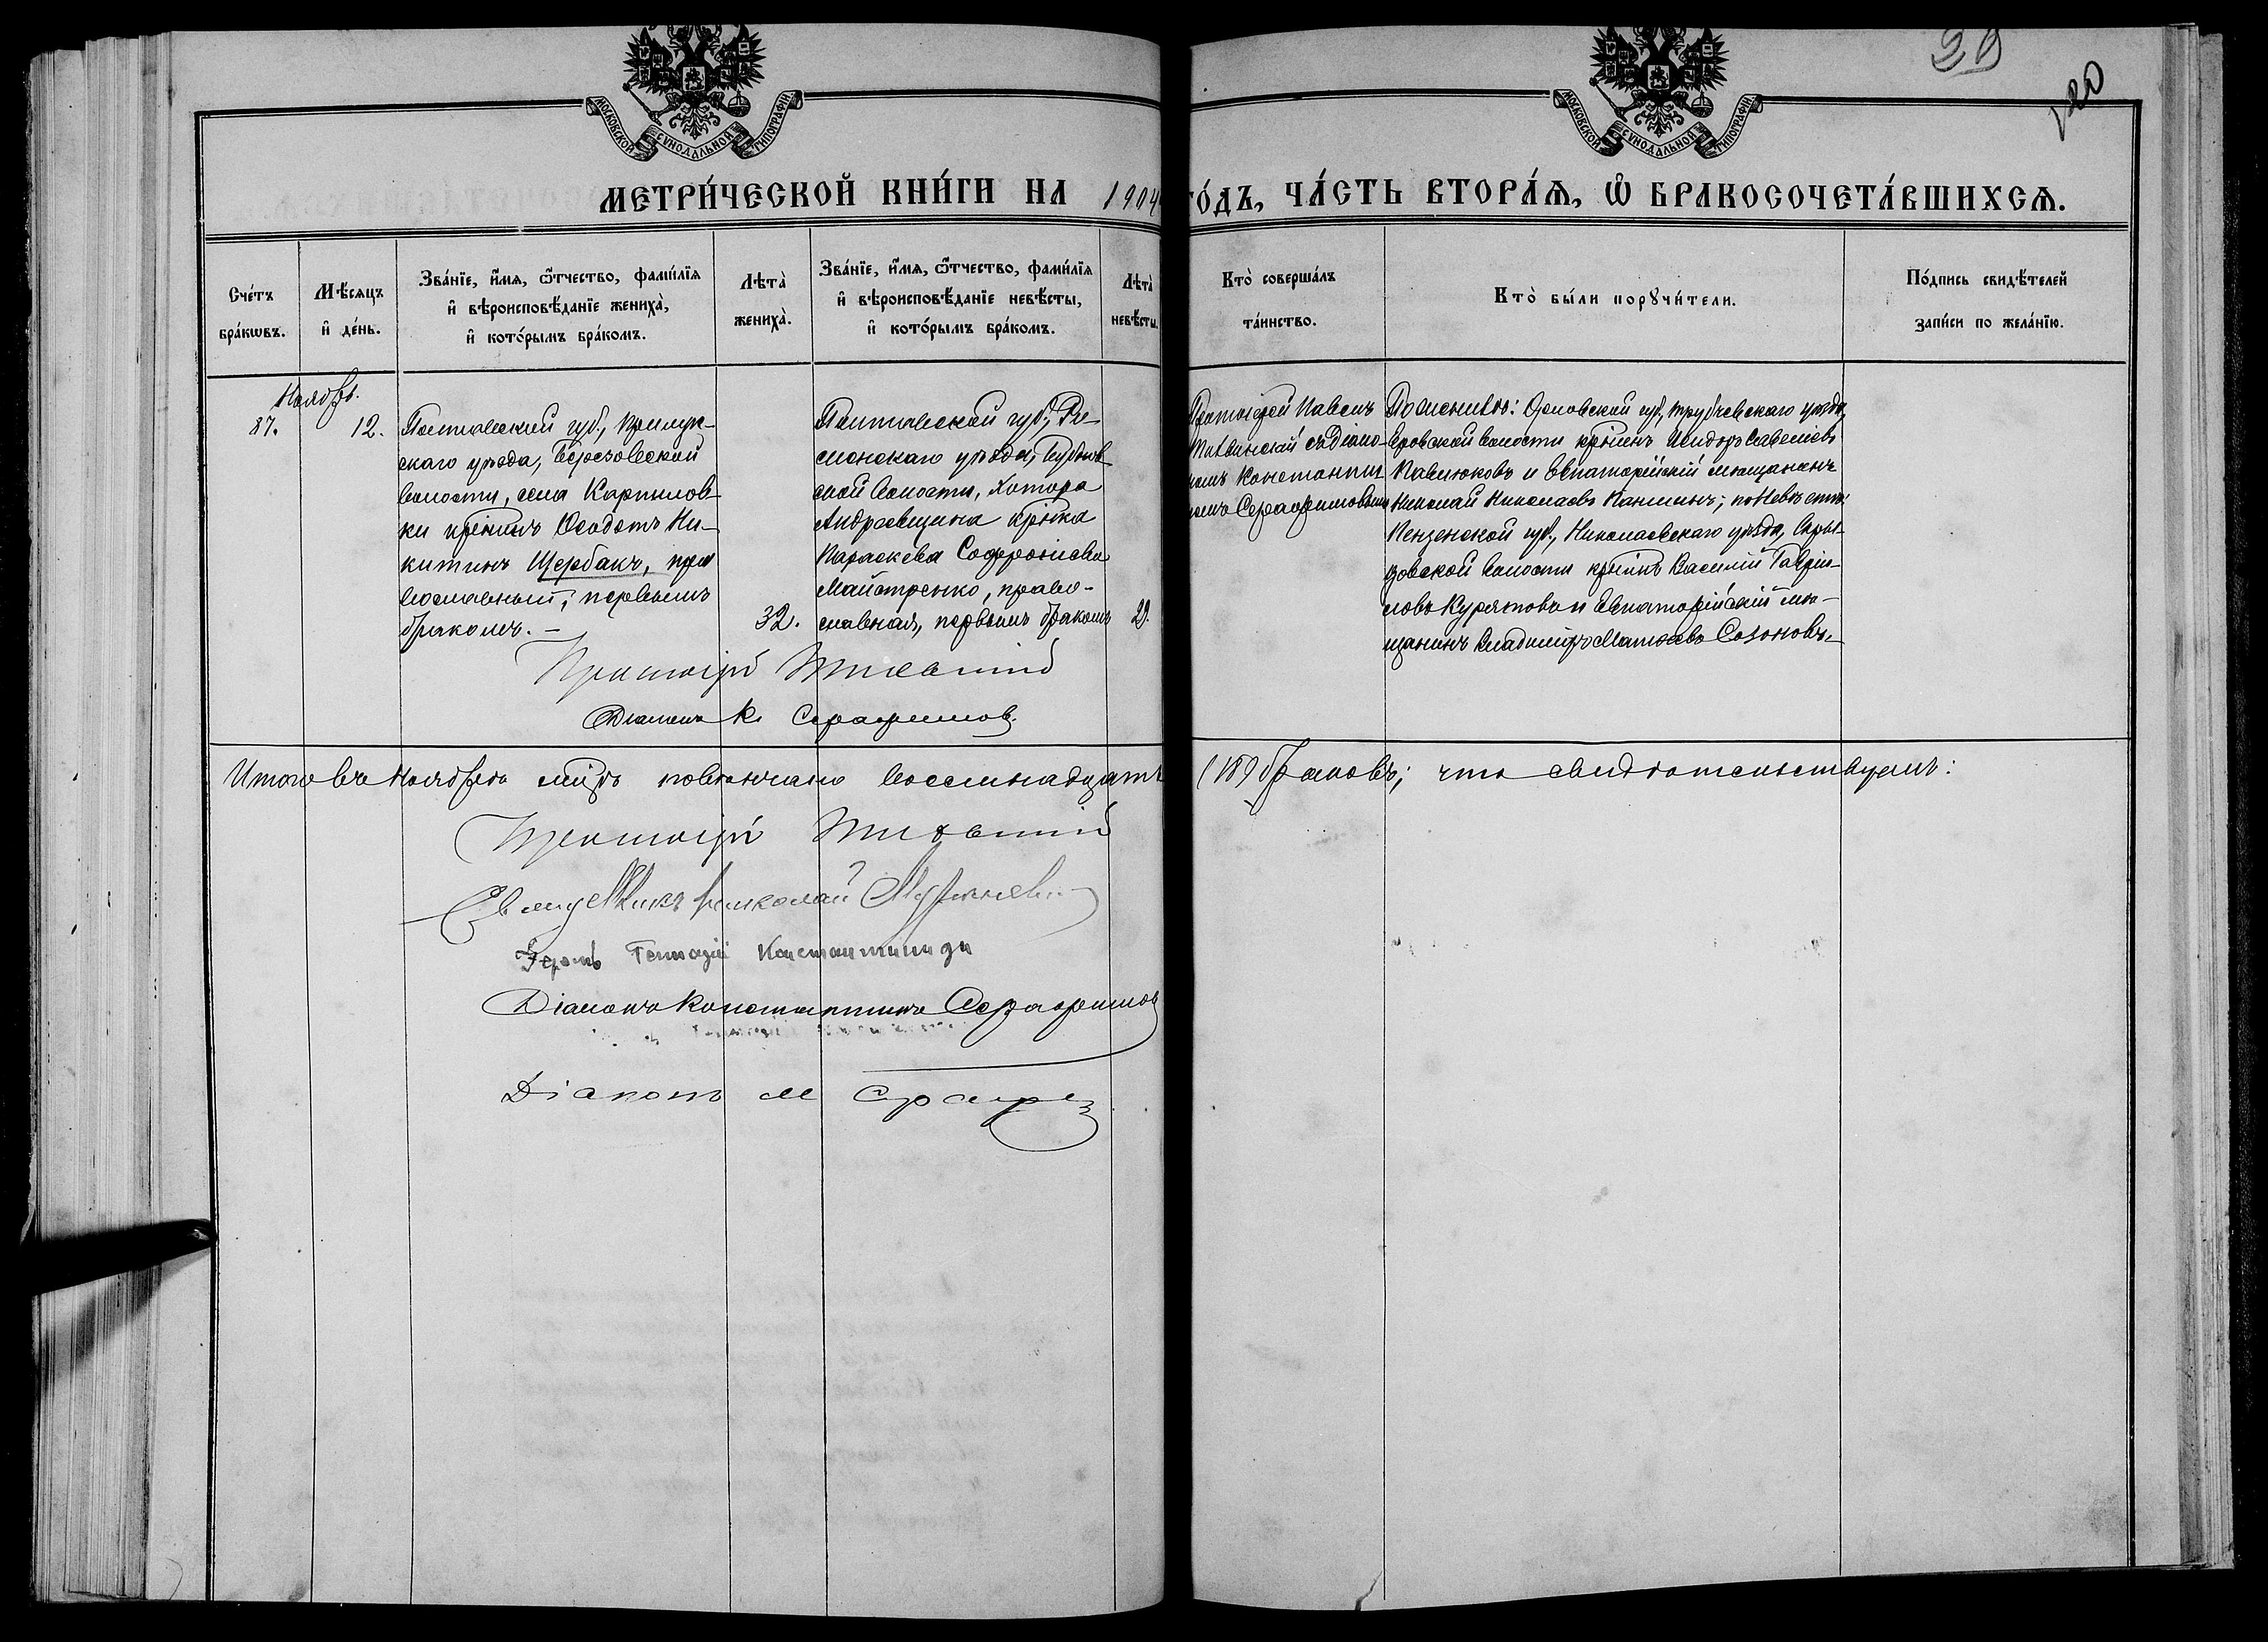 МОСКОВСКОЙ СѴНОДАЛЬНОЙ ТИПОГРАФІИ
МОСКОВСКОЙ СѴНОДАЛЬНОЙ ТИПОГРАФІИ
МЕТРИ́ЧЕСКОЙ КНИ́ГИ НА 1904
ГО́ДЪ, ЧА́СТЬ ВТОРА́Ѧ, Ѽ БРАКОСОЧЕТА́ВШИХСѦ.
Сче́тъ
бра́кѡвъ.
Мѣ́сяцъ
и҆ де́нь.
Зва́нїе, и҆́мя, ѻ҆́тчество, фами́лїя
и҆ вѣроисповѣ́данїе жениха̀,
и҆ кото́рымъ бра́комъ.
Лѣта̀
жениха̀.
Зва́нїе, и҆́мя, ѻ҆́тчество, фами́лїя
и҆ вѣроисповѣ́данїе невѣ́сты,
и҆ кото́рымъ бра́комъ.
Лѣта̀
невѣ́сты.
Кто̀ соверша́лъ
та́инство.
Кто̀ бы́ли порꙋчи́тели.
По́дпись свидѣ́телей
за́писи по жела́нїю.
Ноябрь.
87.
12.
Полтавской губ., Прилук-
скаго уѣзда, Березовской
волости, села Карпилов-
ки кр-нинъ Ѳеодотъ Ни-
китинъ Щербакъ, пра-
вославный, первымъ
бракомъ. –
32.
Полтавской губ.,
уѣзда,
ской волости, хутора
Андреевщина кр-нка
Параскева Софроніева
Майстренко, право-
славная, первымъ бракомъ
29.
Протоіерей Павелъ
Тихвинскій съ діако-
номъ Константи-
номъ Серафимовымъ
По женихѣ: Орловской губ., Трубчевскаго уѣзда,
волости кр-нинъ Исидоръ Савеліевъ
Павлюковъ и Евпаторійскій мѣщанинъ
Николай Николаевъ; по невѣстѣ:
Пензенской губ., уѣзда,
волости кр-нинъ Василій Гаврі-
ловъ Курятовъ и Евпаторійскій мѣ-
щанинъ Владиміръ Матѳеевъ Созоновъ.
Протоіерей Тихвинскій
Діаконъ К. Серафимов
Итого въ Ноябрѣ м-цѣ повѣнчано восемнадцать
(18) браковъ; что свидѣтельствуемъ:
Протоіерей Тихвинскій
Священникъ Николай
Геннадій Константиниди
Діаконъ Константинъ Серафимов
Діаконъ